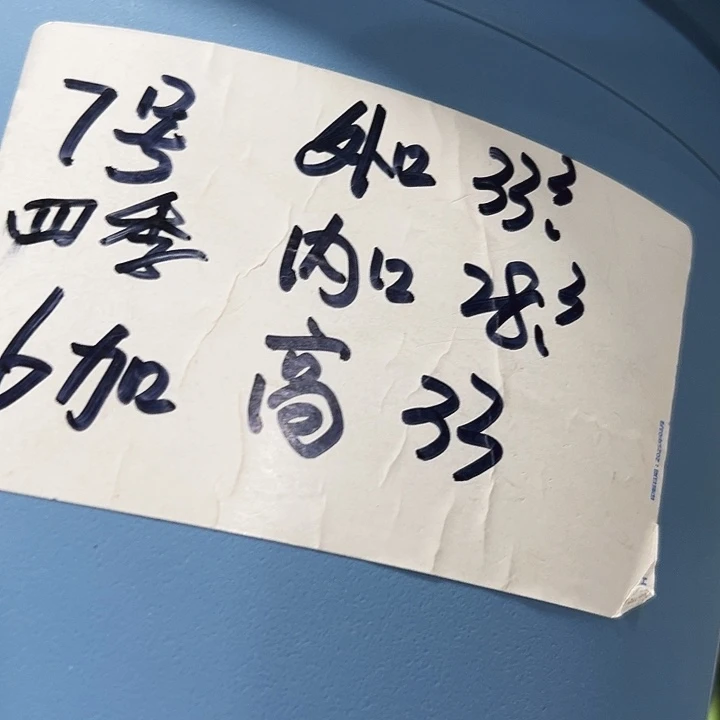 7号 外口 33.3
四季 内口 28.3
6加 高 33